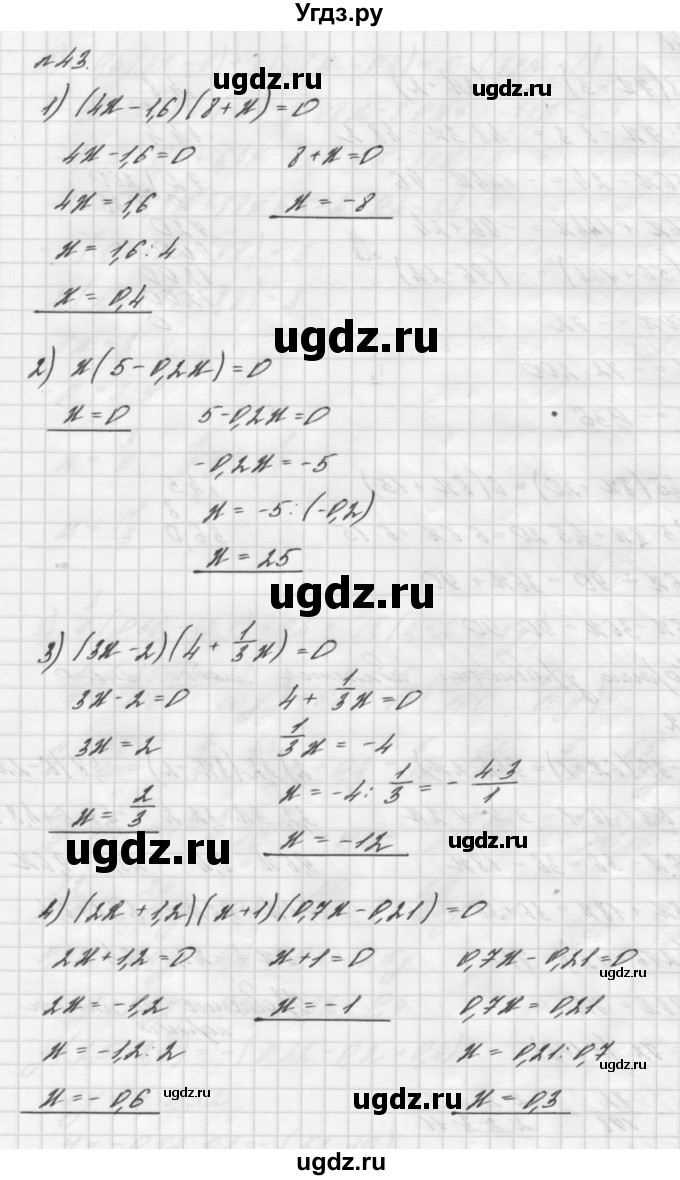 Угдз.ру
ugdz.ru
№43.
1) (4x-1,6)(8+x)=0
4x-1,6=0 8+x=0
4x=1,6 x=-8
x=1,6:4
x=0,4
ugdz.ru
2) x(5-0,2x)=0
x=0 5-0,2x=0
-0,2x=-5
x=-5:(-0,2)
x=25
ugdz.ru
3) (3x-2)(4+1/3x)=0
3x-2=0 4+1/3x=0
3x=2 1/3x=-4
x=2/3 x=-4:1/3=-4·3/1
ugdz.ru x=-12 ugdz.ru
4) (2x+1,2)(x+1)(0,7x-0,21)=0
2x+1,2=0 x+1=0 0,7x-0,21=0
ugdz.ru
2x=-1,2 x=-1 0,7x=0,21
x=-1,2:2 x=0,21:0,7
ugdz.ru
x=-0,6 ugdz.ru ugdz.ru x=0,3
ugdz.ru